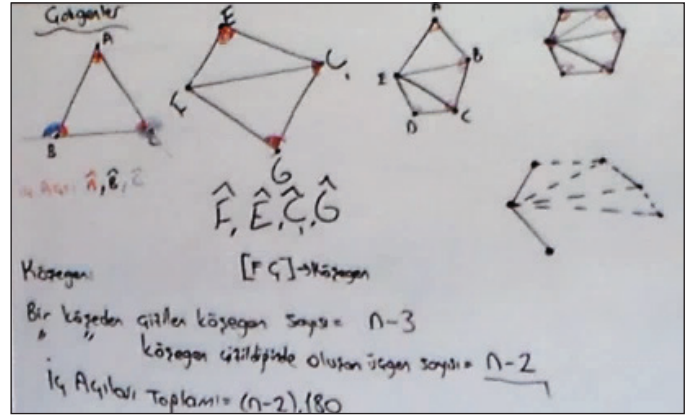 Çokgenler
A
B
C
İç Açı: Â, B̂, Ĉ
E
Ç
F
G
F̂, Ê, Ç̂, Ĝ
A
B
E
D
C
Köşegen:
[FÇ]→köşegen
Bir köşeden çizilen köşegen sayısı = n-3
" " köşegen çizildiğinde oluşan üçgen sayısı = n-2
İç Açıları Toplamı = (n-2).180